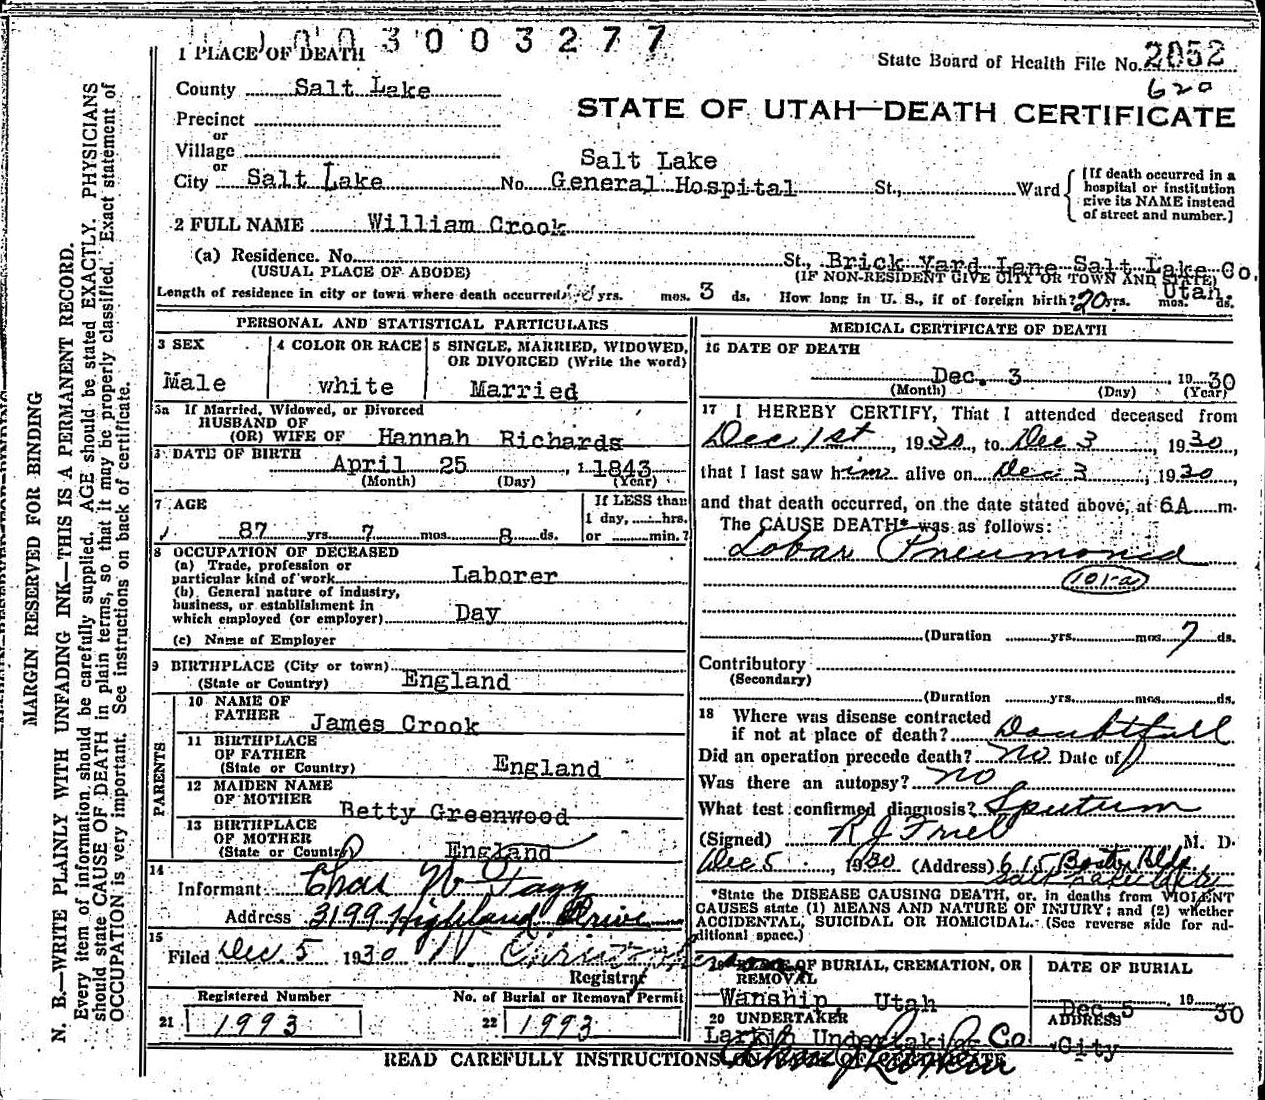 1003003277
1 PLACE OF DEATH
State Board of Health File No. 2052
620
County Salt Lake
STATE OF UTAH—DEATH CERTIFICATE
Precinct
or
Village
or
Salt Lake
City Salt Lake No. General Hospital St., Ward
[If death occurred in a
hospital or institution
give its NAME instead
of street and number.]
2 FULL NAME William Crook
(a) Residence. No. St., Brick Yard Lane Salt Lake Co.
(USUAL PLACE OF ABODE) (IF NON-RESIDENT GIVE CITY OR TOWN AND STATE)
Utah
Length of residence in city or town where death occurred yrs. mos. 3 ds. How long in U. S., if of foreign birth? 20 yrs. mos. ds.
PERSONAL AND STATISTICAL PARTICULARS
3 SEX
Male
4 COLOR OR RACE
white
5 SINGLE, MARRIED, WIDOWED,
OR DIVORCED (Write the word)
Married
5a If Married, Widowed, or Divorced
HUSBAND OF
(OR) WIFE OF Hannah Richards
DATE OF BIRTH
April 25 , 1843
(Month) (Day) (Year)
7 AGE
87 yrs. 7 mos. 8 ds.
If LESS than
1 day, hrs.
or min.?
8 OCCUPATION OF DECEASED
(a) Trade, profession or
particular kind of work Laborer
(b) General nature of industry,
business, or establishment in
which employed (or employer) Day
(c) Name of Employer
9 BIRTHPLACE (City or town)
(State or Country) England
PARENTS
10 NAME OF
FATHER
James Crook
11 BIRTHPLACE
OF FATHER
(State or Country) England
12 MAIDEN NAME
OF MOTHER
Betty Greenwood
13 BIRTHPLACE
OF MOTHER
(State or Country) England
14
Informant Chas W Fagg
Address 3199 Highland Drive
15
Filed Dec. 5 1930
Registrar
Registered Number
21 1993
No. of Burial or Removal Permit
22 1993
MEDICAL CERTIFICATE OF DEATH
16 DATE OF DEATH
Dec. 3 , 1930
(Month) (Day) (Year)
17 I HEREBY CERTIFY, That I attended deceased from
Dec 1st , 1930, to Dec 3 , 1930,
that I last saw him alive on Dec 3 , 1930,
and that death occurred, on the date stated above, at 6A m.
The CAUSE DEATH* was as follows:
Lobar Pneumonia
101-a
(Duration yrs. mos. 7 ds.
Contributory
(Secondary)
(Duration yrs. mos. ds.
18 Where was disease contracted
if not at place of death? Doubtfull
Did an operation precede death? no Date of
Was there an autopsy? no
What test confirmed diagnosis? Sputum
(Signed) M. D.
Dec 5 , 1930 (Address) 615 Boston Bldg
Salt Lake City
*State the DISEASE CAUSING DEATH, or, in deaths from VIOLENT
CAUSES state (1) MEANS AND NATURE OF INJURY; and (2) whether
ACCIDENTAL, SUICIDAL OR HOMICIDAL. (See reverse side for ad-
ditional space.)
19 PLACE OF BURIAL, CREMATION, OR
REMOVAL
Wanship Utah
DATE OF BURIAL
Dec. 5 , 1930
20 UNDERTAKER
Larkin Undertaking Co.
ADDRESS
City
READ CAREFULLY INSTRUCTIONS ON BACK OF CERTIFICATE
MARGIN RESERVED FOR BINDING
N. B.—WRITE PLAINLY WITH UNFADING INK—THIS IS A PERMANENT RECORD.
Every item of information should be carefully supplied. AGE should be stated EXACTLY. PHYSICIANS
should state CAUSE OF DEATH in plain terms, so that it may be properly classified. Exact statement of
OCCUPATION is very important. See instructions on back of certificate.